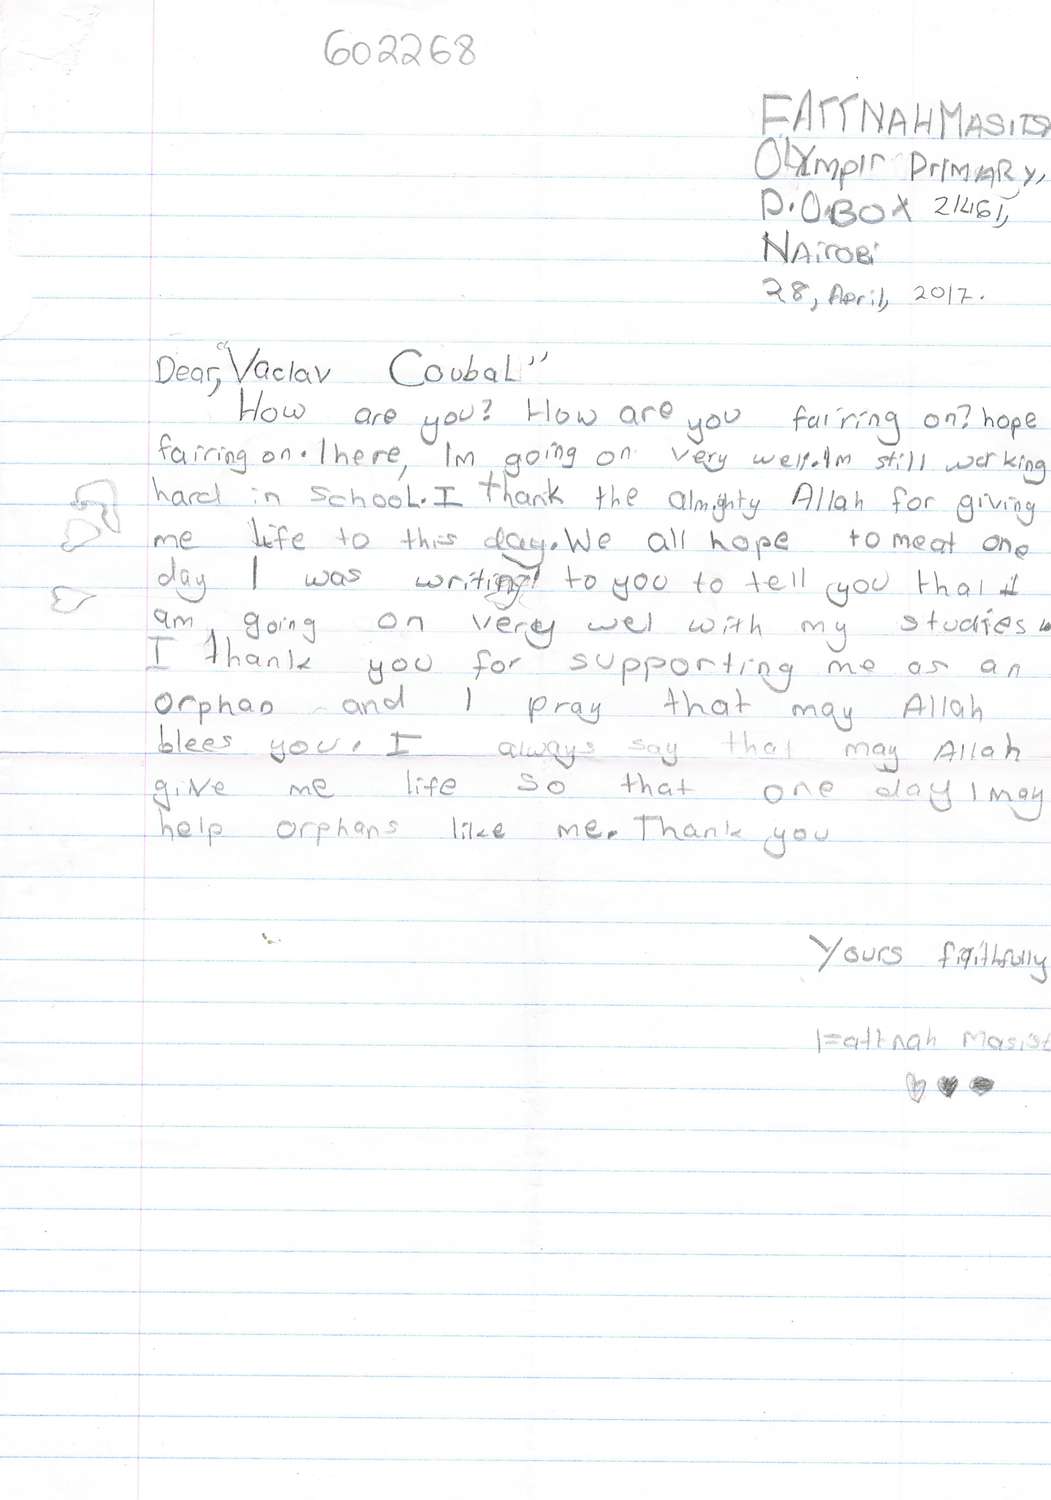 602268
FATTNAH MASITS
OLYMPIC PRIMARY,
P.O.BOX 21461,
NAiROBi
28, April, 2017.
Dear, "Vaclav Coubal"
How are you? How are you fairing on? hope
fairing on. I here, Im going on very well. Im still working
hard in school. I thank the almighty Allah for giving
me life to this day. We all hope to meat one
day I was writing to you to tell you that I
am going on very wel with my studies.
I thank you for supporting me as an
orphan and I pray that may Allah
blees you. I always say that may Allah
give me life so that one day I may
help orphans like me. Thank you
Yours faithfully
Fattnah Masist